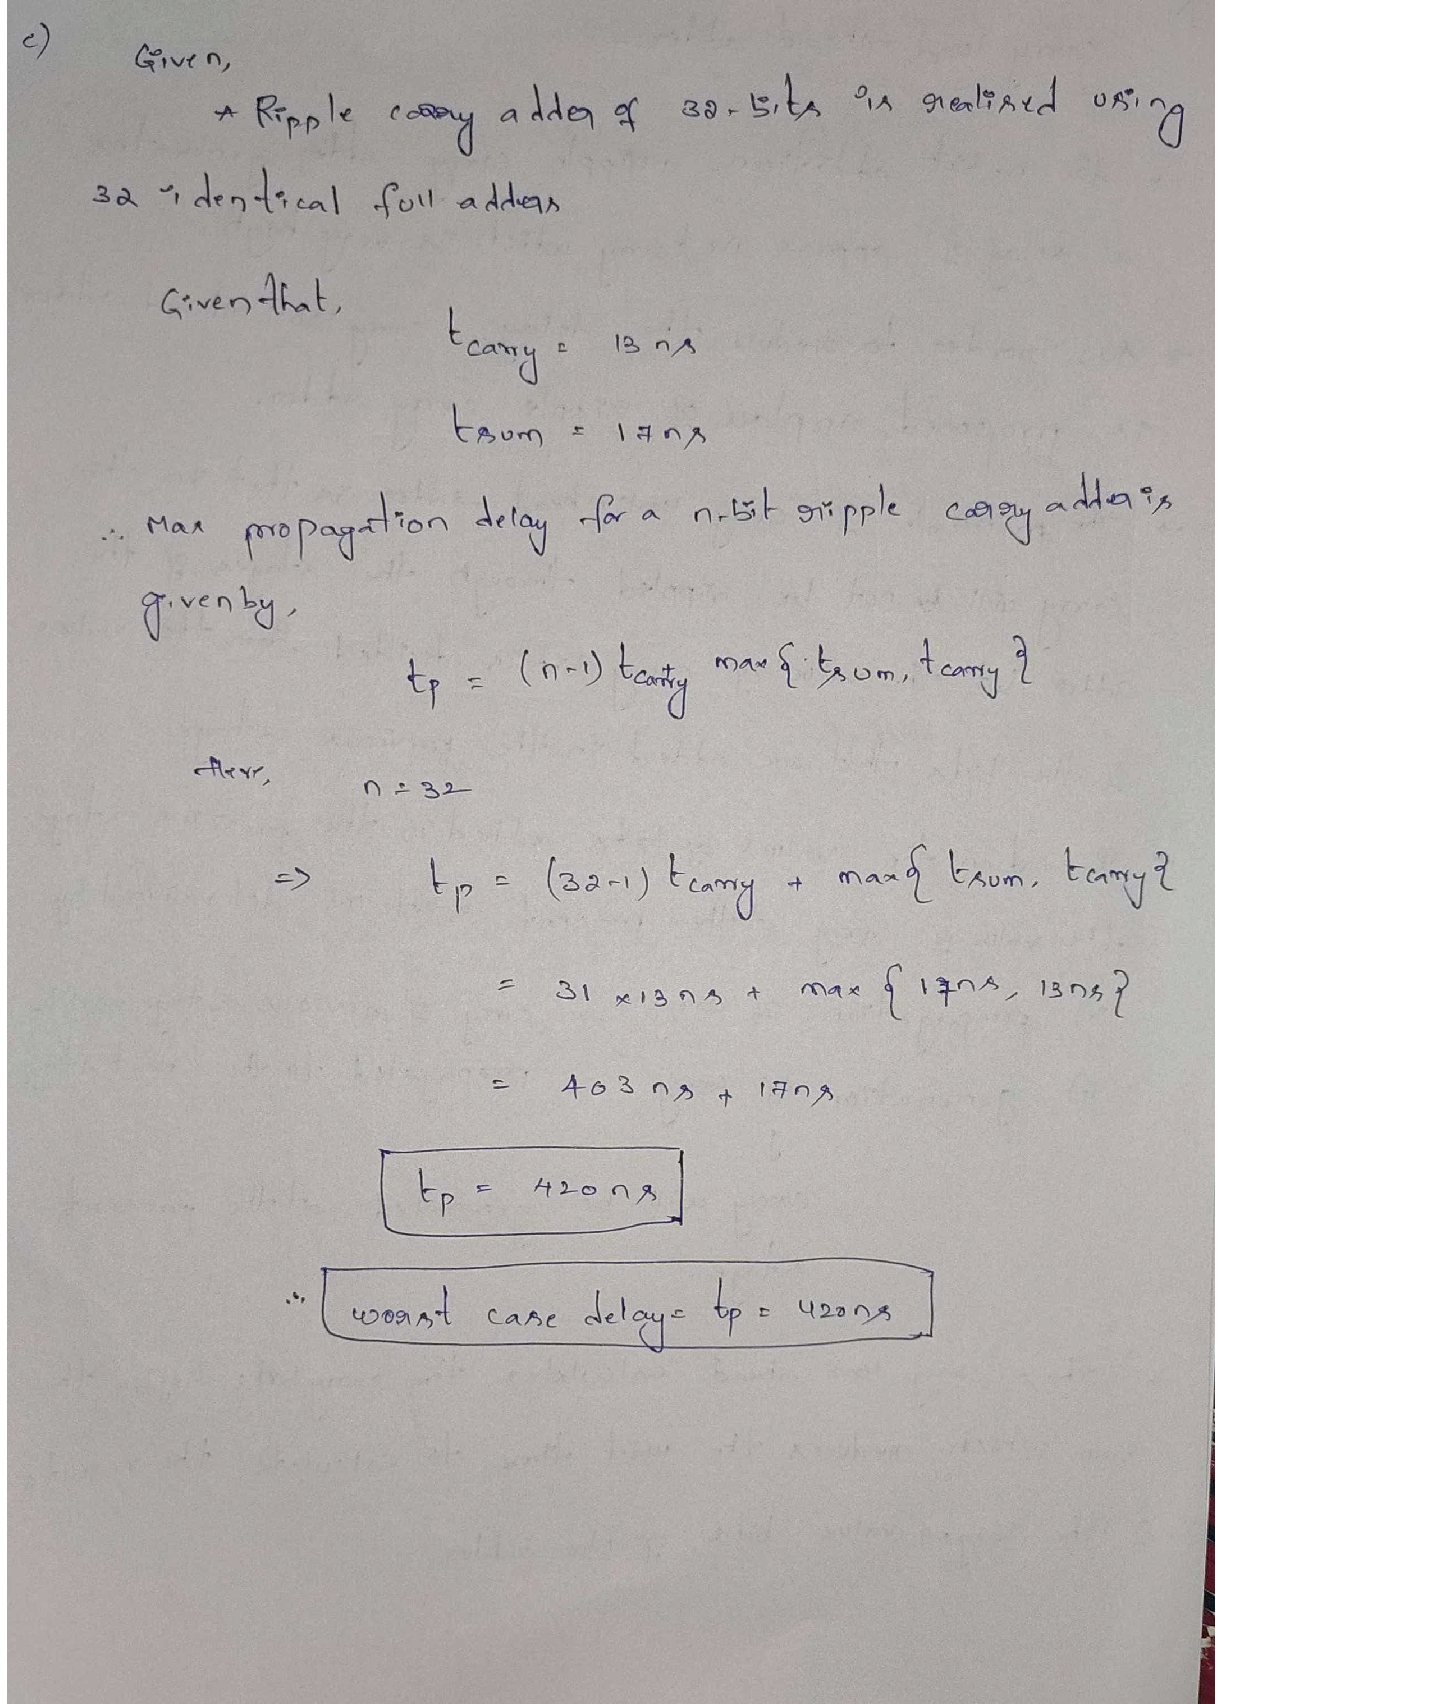 c)
Given,
* Ripple carry adder of 32-bits is realised using
32 identical full adders
Given that,
tcarry = 13 ns
tsum = 17ns
∴ Max propagation delay for a n-bit ripple carry adder is
given by,
tp = (n-1) tcarry + max { tsum, tcarry }
Here,
n = 32
=> tp = (32-1) tcarry + max{ tsum, tcarry }
= 31 x 13 ns + max { 17ns, 13ns }
= 403 ns + 17ns
tp = 420 ns
∴ worst case delay = tp = 420ns